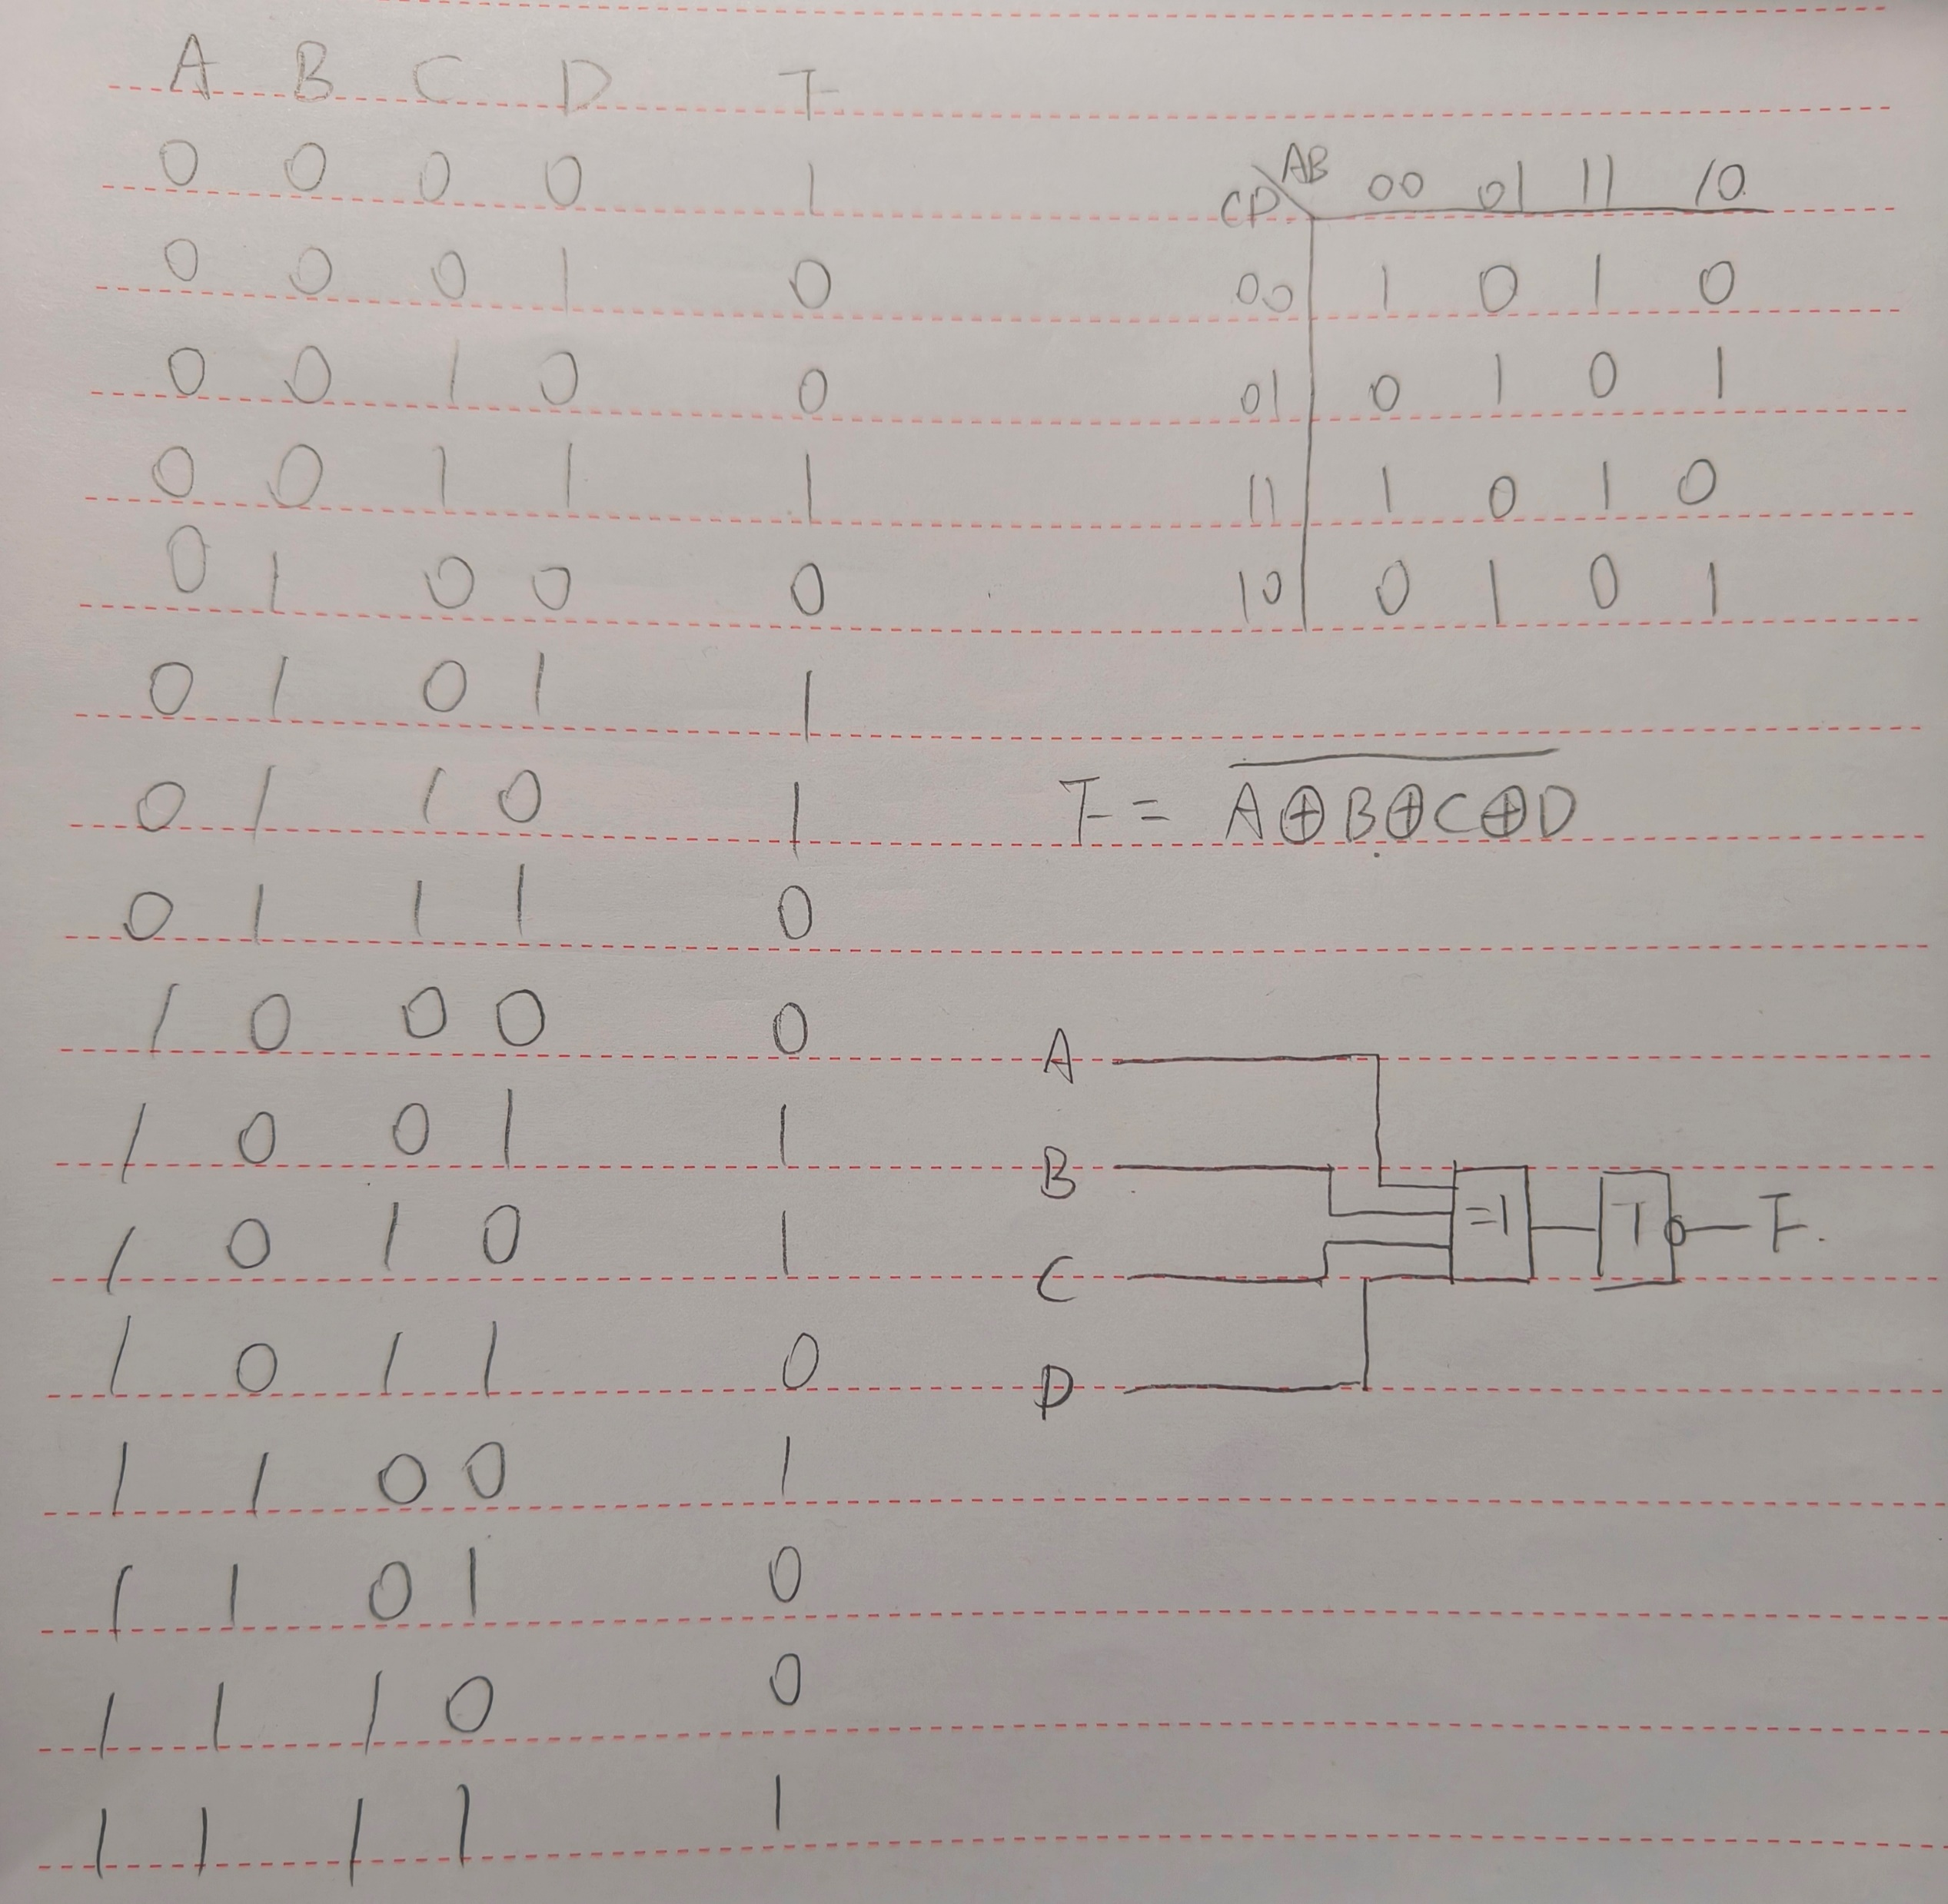 A B C D F
0 0 0 0 1
0 0 0 1 0
0 0 1 0 0
0 0 1 1 1
0 1 0 0 0
0 1 0 1 1
0 1 1 0 1
0 1 1 1 0
1 0 0 0 0
1 0 0 1 1
1 0 1 0 1
1 0 1 1 0
1 1 0 0 1
1 1 0 1 0
1 1 1 0 0
1 1 1 1 1
CD\AB 00 01 11 10
00 1 0 1 0
01 0 1 0 1
11 1 0 1 0
10 0 1 0 1
F = \overline{A⊕B⊕C⊕D}
A
B
=1 1 F.
C
D